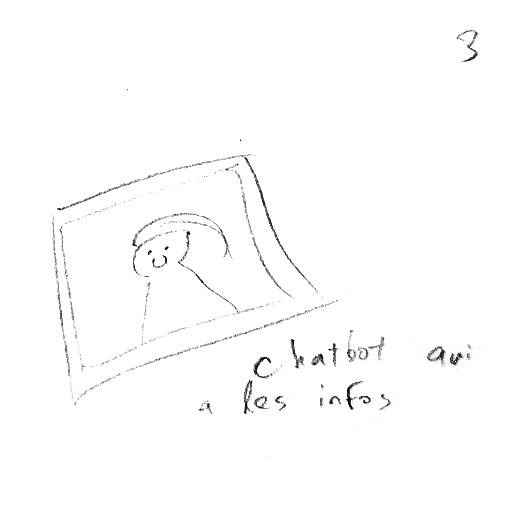 3
chatbot qui
a les infos